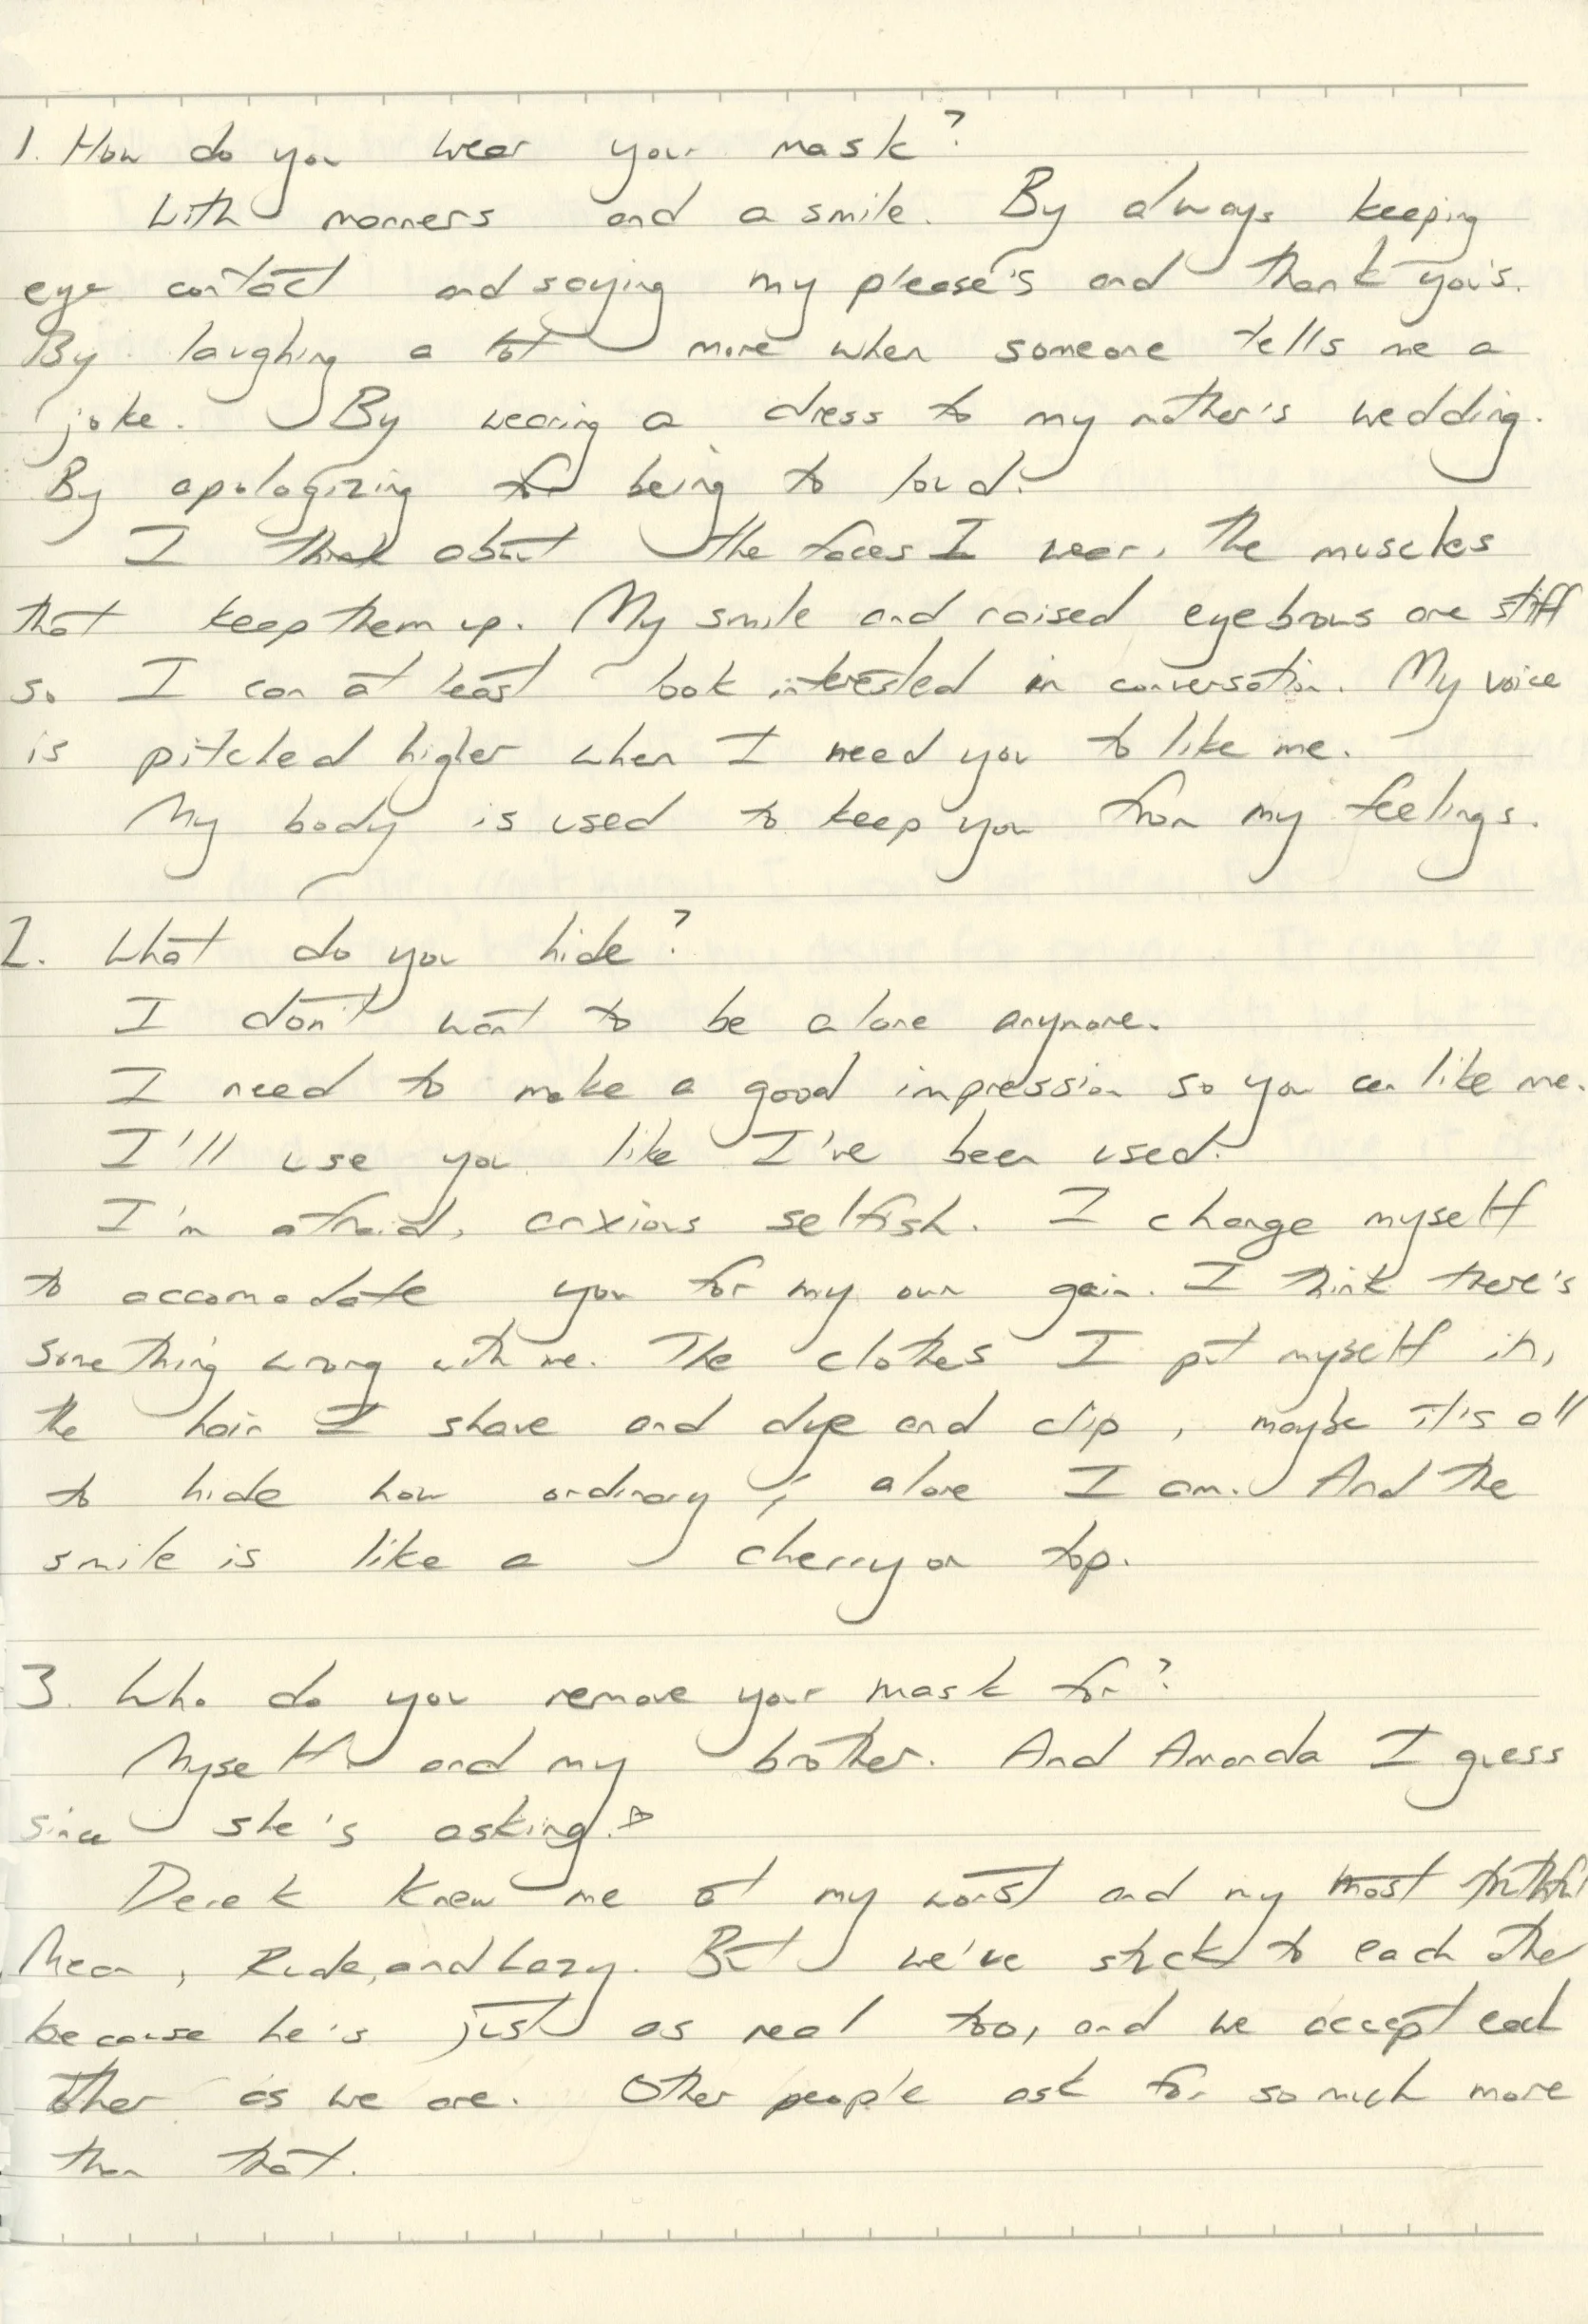 1. How do you wear your mask?
With manners and a smile. By always keeping
eye contact and saying my please's and thank you's.
By laughing a lot more when someone tells me a
joke. By wearing a dress to my mother's wedding.
By apologizing for being to loud.
I think about the faces I wear, the muscles
that keep them up. My smile and raised eyebrows are stiff
so I can at least look interested in conversation. My voice
is pitched higher when I need you to like me.
My body is used to keep you from my feelings.
2. What do you hide?
I don't want to be alone anymore.
I need to make a good impression so you can like me.
I'll use you like I've been used.
I'm afraid, anxious selfish. I change myself
to accomodate you for my own gain. I think there's
something wrong with me. The clothes I put myself in,
the hair I shave and dye and clip, maybe it's all
to hide how ordinary; alone I am. And the
smile is like a cherry on top.
3. Who do you remove your mask for?
Myself and my brother. And Amanda I guess
since she's asking.
Derek knew me at my worst and my most truthful
Mean, Rude, and Lazy. But we've stuck to each other
because he's just as real too, and we accept each
other as we are. Other people ask for so much more
than that.